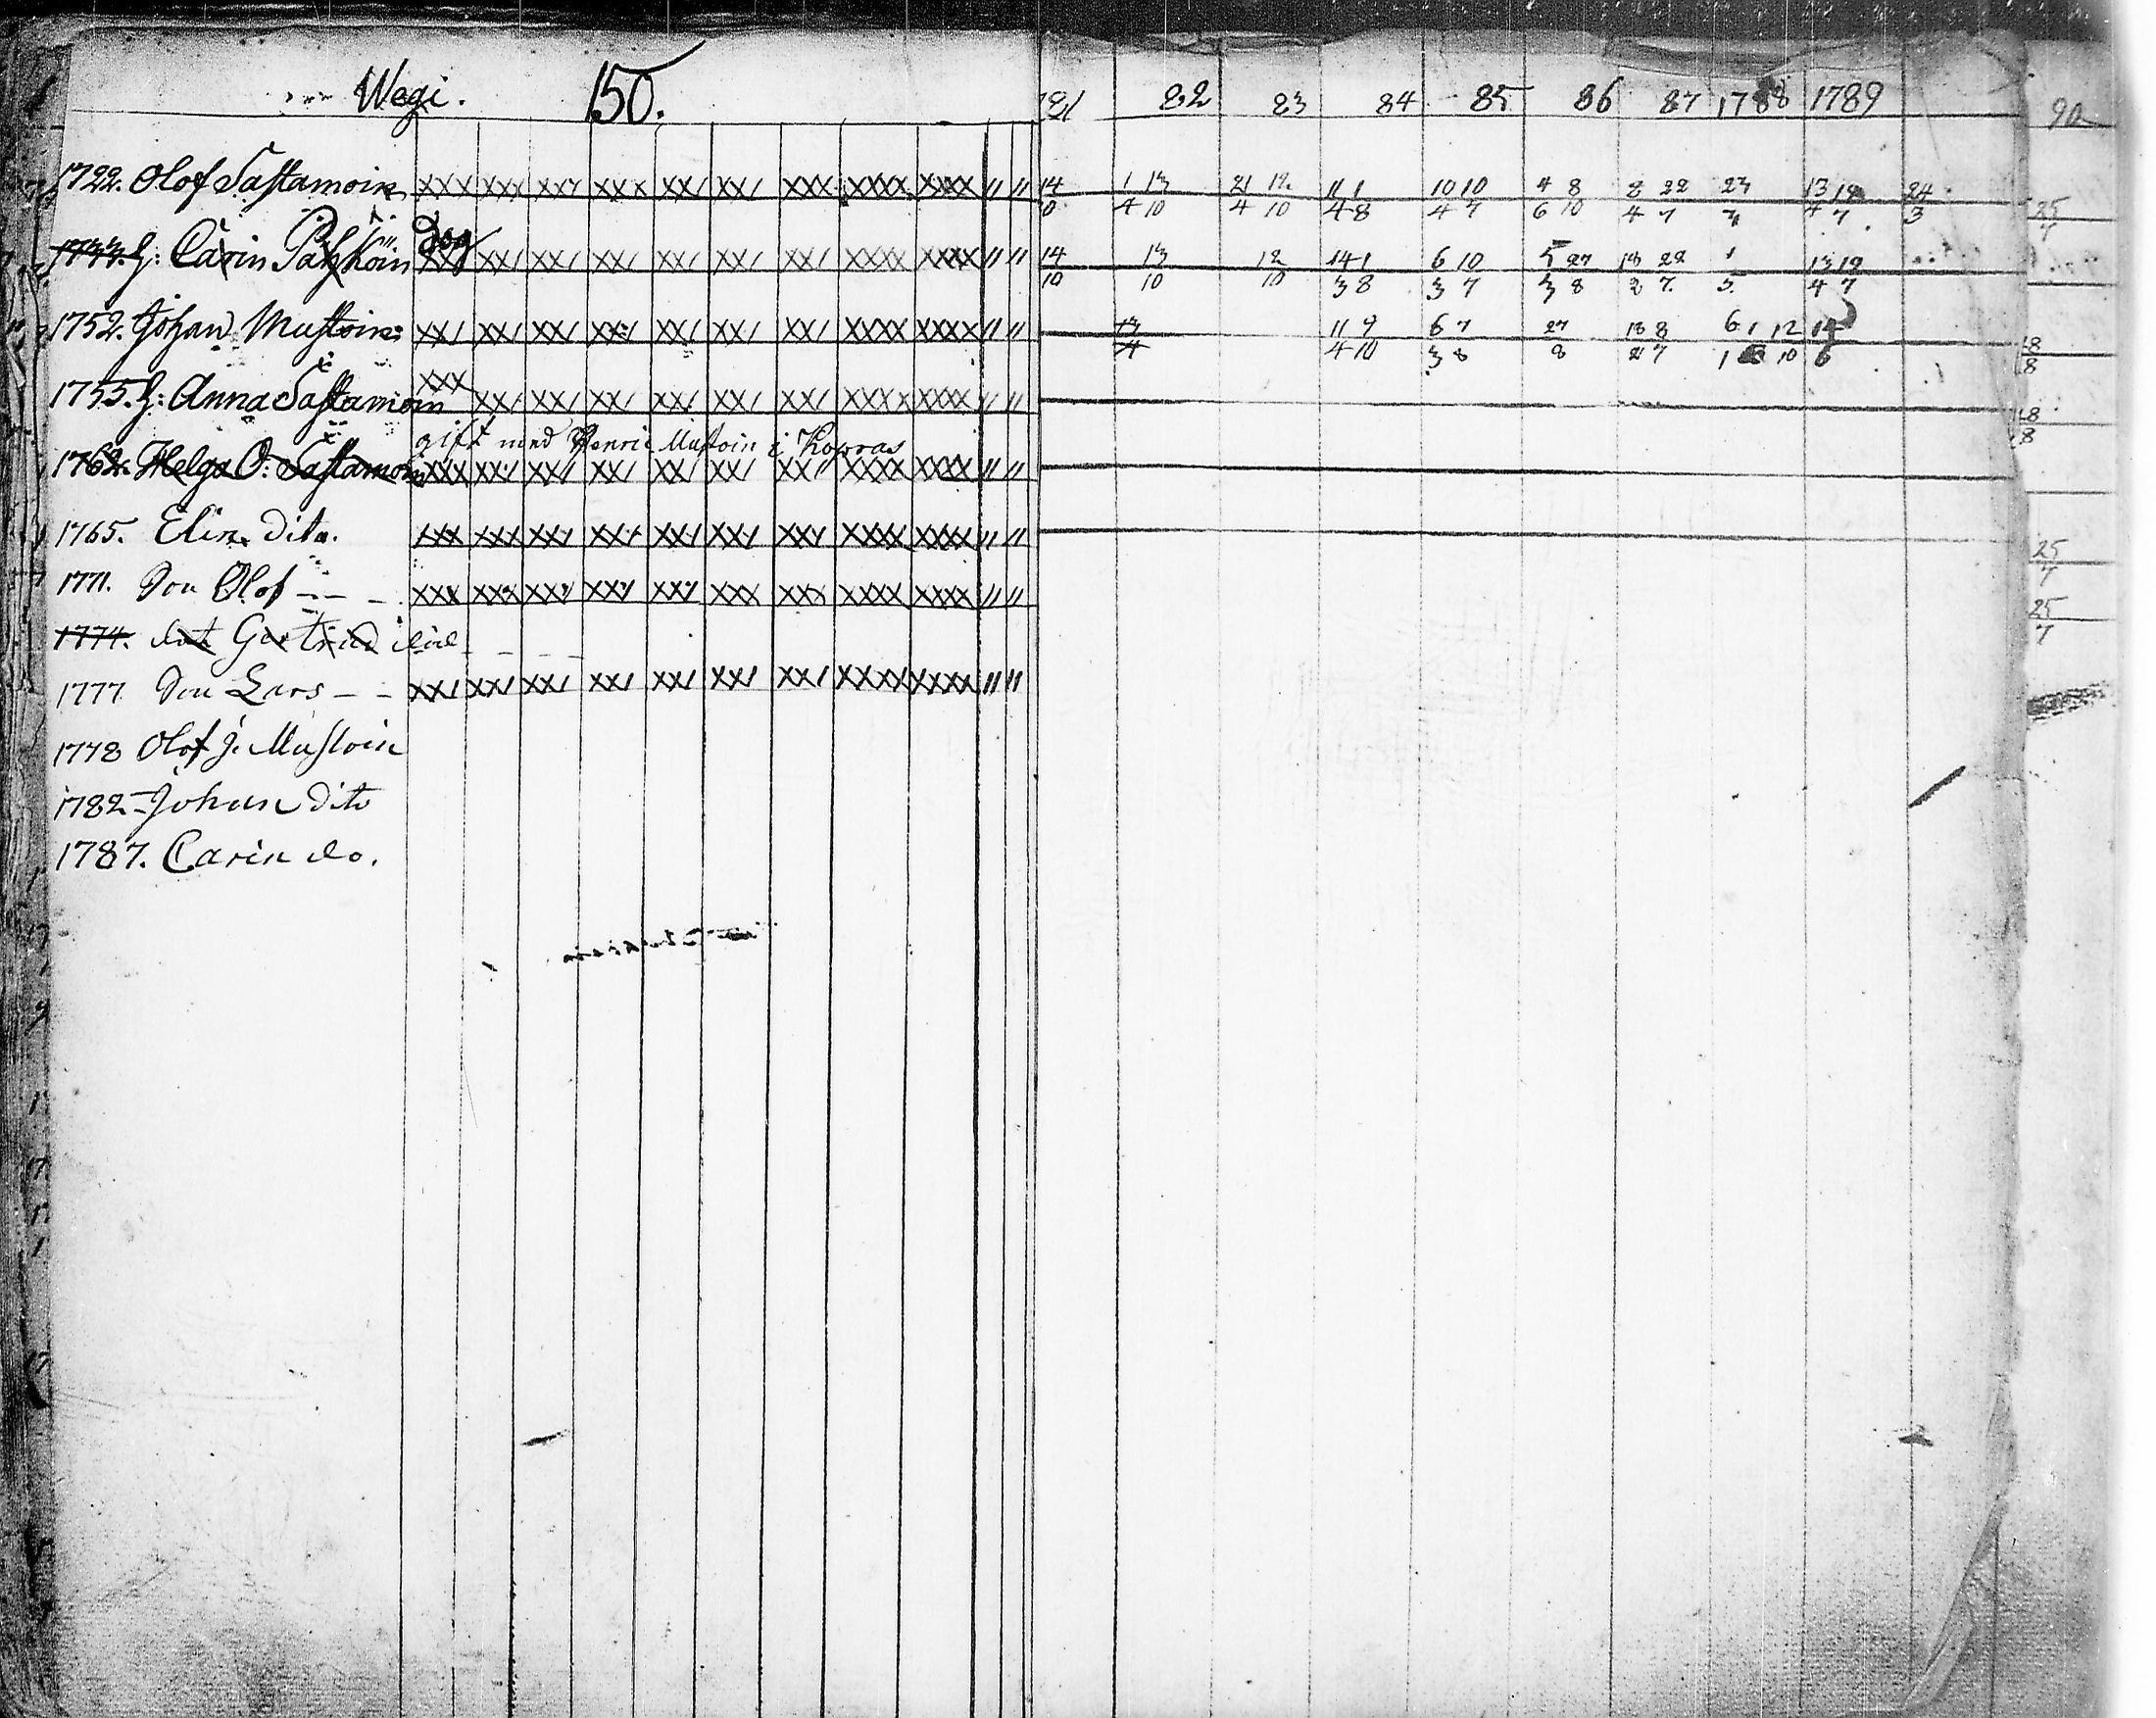 Wegi. 150. 781 82 83 84 85 86 87 1788 1789 90
1722. Olof Sastamoin xxx xxx xxx xxx xx/ xx/ xxx xxxx xxxx // // 14 1 13 21 12 11 1 10 10 4 8 8 22 23 13 19 24 25
0 4 10 4 10 4 8 4 7 6 10 4 7 3 4 7 3 7
1733. H: Carin Pahkoin död xx/ xx/ xx/ xx/ xx/ xx/ xx/ xxxx xxxx // // 14 13 12 14 1 6 10 5 27 18 22 1 13 19
10 10 10 3 8 3 7 3 8 2 7. 5. 4 7
1752. Johan Mustoin: xx/ xx/ xx/ xx/ xx/ xx/ xx/ xxxx xxxx // // 13 11 9 6 7 27 18 8 6 1 12 14 18
4 4 10 3 8 8 2 7 1 10 6 8
1755. H: Anna Sastamoin xxx xx/ xx/ xx/ xx/ xx/ xx/ xxxx xxxx // // 18
8
gift med Henric Mustoin i Koproas
1762. Helga O: Sastamoin xxx xx/ xx/ xx/ xx/ xx/ xx/ xxxx xxxx // //
1765. Elin dito. xxx xxx xx/ xx/ xx/ xx/ xx/ xxxx xxxx // // 25
7
1771. Son Olof - - - xxx xxx xx/ xx/ xx/ xxx xxx xxxx xxxx // // 25
7
1774. dot Gertrud död - - -
1777 Son Lars - - xx/ xx/ xx/ xx/ xx/ xx/ xx/ xxxx xxxx // //
1778 Olof J. Mustoin
1782 Johan dito
1787. Carin do.